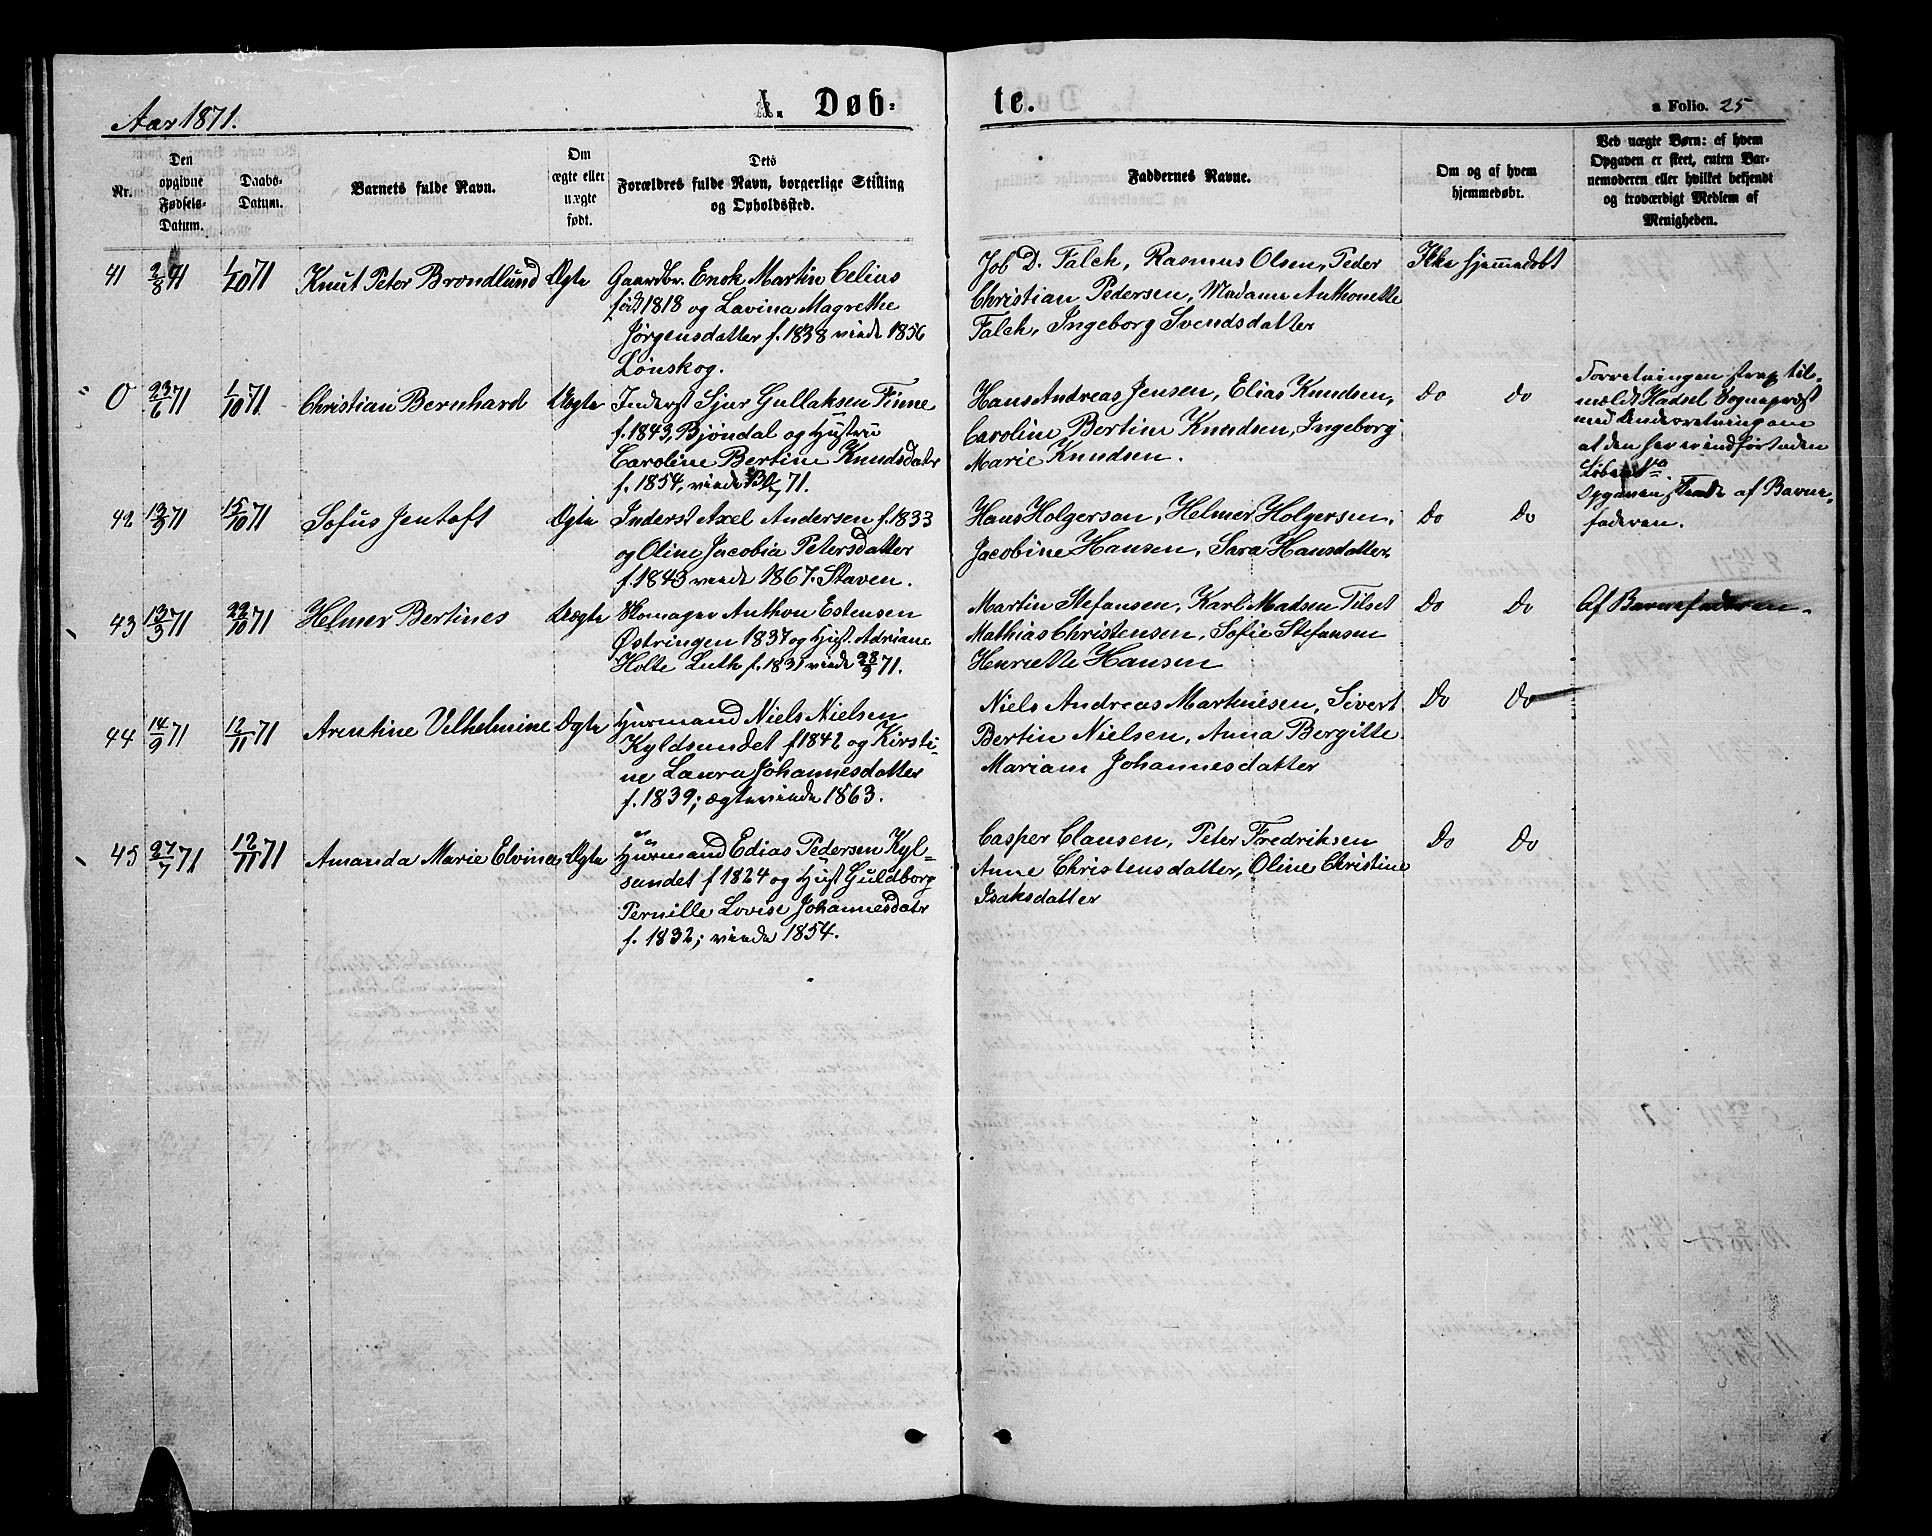 Aar 1871.
A. Døb-
te.
a Folio. 25
Nr.
Den opgivne Fødsels-Datum.
Daabs-Datum.
Barnets fulde Navn.
Om ægte eller uægte født.
Dets Forældres fulde Navn, borgerlige Stilling og Opholdssted.
Faddernes Navne.
Om og af hvem hjemmedøbt.
Ved uægte Børn: af hvem Opgaven er skeet, enten Barnemoderen eller hvilket bekjendt og troværdigt Medlem af Menigheden.
41 2/8 71 1/10 71 Knut Peter Brondlund Ægte
Gaardbr. Enok Martin Celius
født 1818 og Lavina Magrethe
Jørgensdatter f. 1838 viede 1856
Lonskog.
Job D. Falch, Rasmus Olsen, Peder
Christian Pedersen, Madame Anthonette
Falch, Ingeborg Svendsdatter
Ikke hjemmedøbt
0 23/6 71 1/10 71 Christian Bernhard Uægte
Inderst Sjur Gullaksen Finne
f. 1843, Bjöndal og Hustru
Caroline Bertine Knudsdatr
f. 1854, viede 71.
Hans Andreas Jensen, Elias Knudsen,
Caroline Bertine Knudsen, Ingeborg
Marie Knudsen.
Do Do
Forretningen strax til-
meldt Hadsel Sognepræst
med Underretning om
at den her er indført uden
Løbe No
Opgaven skeede af Barne-
faderen.
42 13/9 71 15/10 71 Sofus Jentoft Ægte
Inderst Axel Andersen f. 1833
og Oline Jacobia Petersdatter
f. 1843 viede 1867. Staven.
Hans Holgersan, Helmer Holgersen,
Jacobine Hansen, Sara Hansdatter.
Do Do
43 13/3 71 22/10 71 Helmer Bertines Uægte
Skomager Anthon Estensen
Østringen 1837 og Hust. Adriane
Holte Luth f. 1831 viede 28/9 71.
Martin Stefansen, Karl Madsen Tilset
Mathias Christensen, Sofie Stefansen
Henriette Hansen
Do Do
Af Barnefaderen.
44 14/9 71 12/11 71 Arentine Velhelmine Ægte
Huusmand Niels Nielsen
Kyldsundet f 1842 og Kirsti-
ne Laura Johannesdatter
f. 1839; ægteviede 1863.
Niels Andreas Martinisen, Sivert
Bertin Nielsen, Anna Bergitte
Mariam Johannesdatter
Do Do
45 27/7 71 12/11 71 Amanda Marie Elvina, Ægte
Huusmand Edias Pedersen Kyl-
sundet f 1824 og Hust Guldborg
Pernille Lovise Johannesdatr
f. 1832; viede 1854.
Casper Clausen, Peter Fredriksen
Anne Christensdatter, Oline Christine
Isaksdatter
Do Do